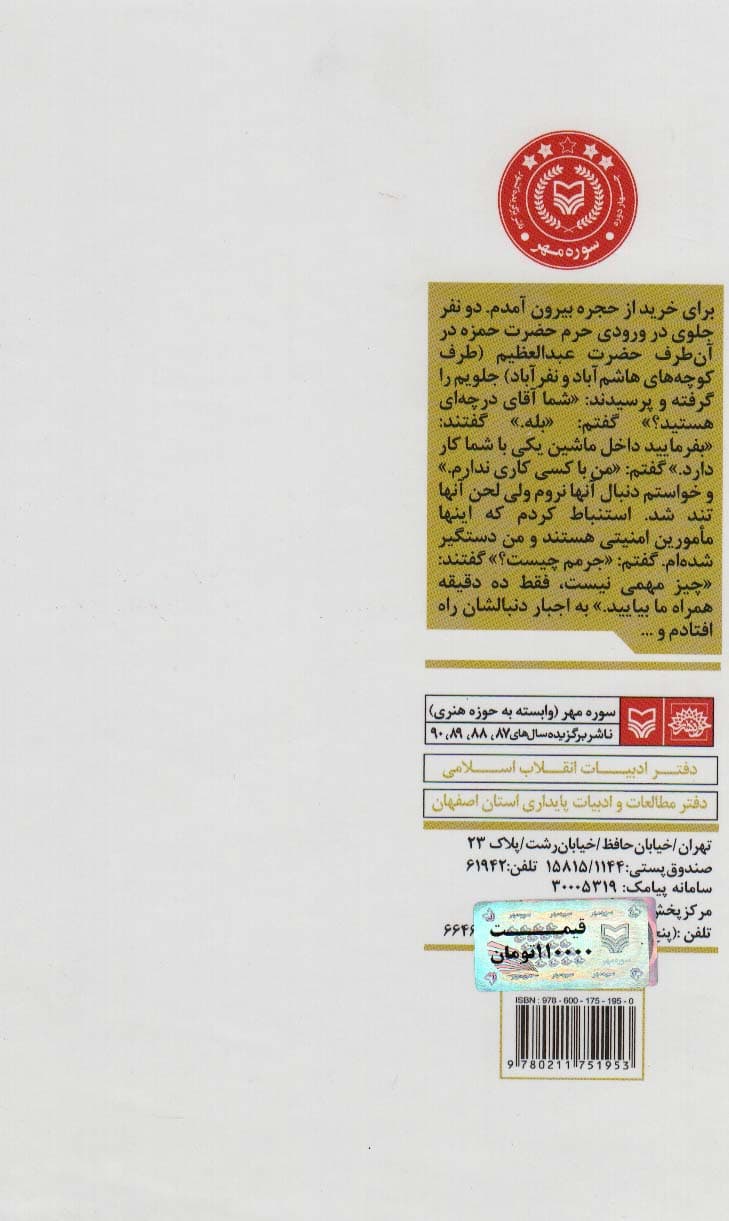 چهار دوره
سوره مهر
برای خرید از حجره بیرون آمدم. دو نفر
جلوی در ورودی حرم حضرت حمزه در
آن‌طرف حضرت عبدالعظیم (طرف
کوچه‌های هاشم‌آباد و نفرآباد) جلویم را
گرفته و پرسیدند: «شما آقای درچه‌ای
هستید؟» گفتم: «بله.» گفتند:
«بفرمایید داخل ماشین یکی با شما کار
دارد.» گفتم: «من با کسی کاری ندارم.»
و خواستم دنبال آنها نروم ولی لحن آنها
تند شد. استنباط کردم که اینها
مأمورین امنیتی هستند و من دستگیر
شده‌ام. گفتم: «جرمم چیست؟» گفتند:
«چیز مهمی نیست، فقط ده دقیقه
همراه ما بیایید.» به اجبار دنبالشان راه
افتادم و ...
سوره مهر (وابسته به حوزه هنری)
ناشر برگزیده سال‌های ۸۷، ۸۸، ۸۹، ۹۰
دفتر ادبیات انقلاب اسلامی
دفتر مطالعات و ادبیات پایداری استان اصفهان
تهران/خیابان حافظ/خیابان رشت/پلاک ۲۳
صندوق پستی: ۱۵۸۱۵/۱۱۴۴ تلفن: ۶۱۹۴۲
سامانه پیامک: ۳۰۰۰۵۳۱۹
مرکز پخش
تلفن: (پنج ۶۶۴۶
قیمت
۱۱۰۰۰۰تومان
سوره مهر
ISBN : 978 - 600 - 175 - 195 - 0
9 780211 751953